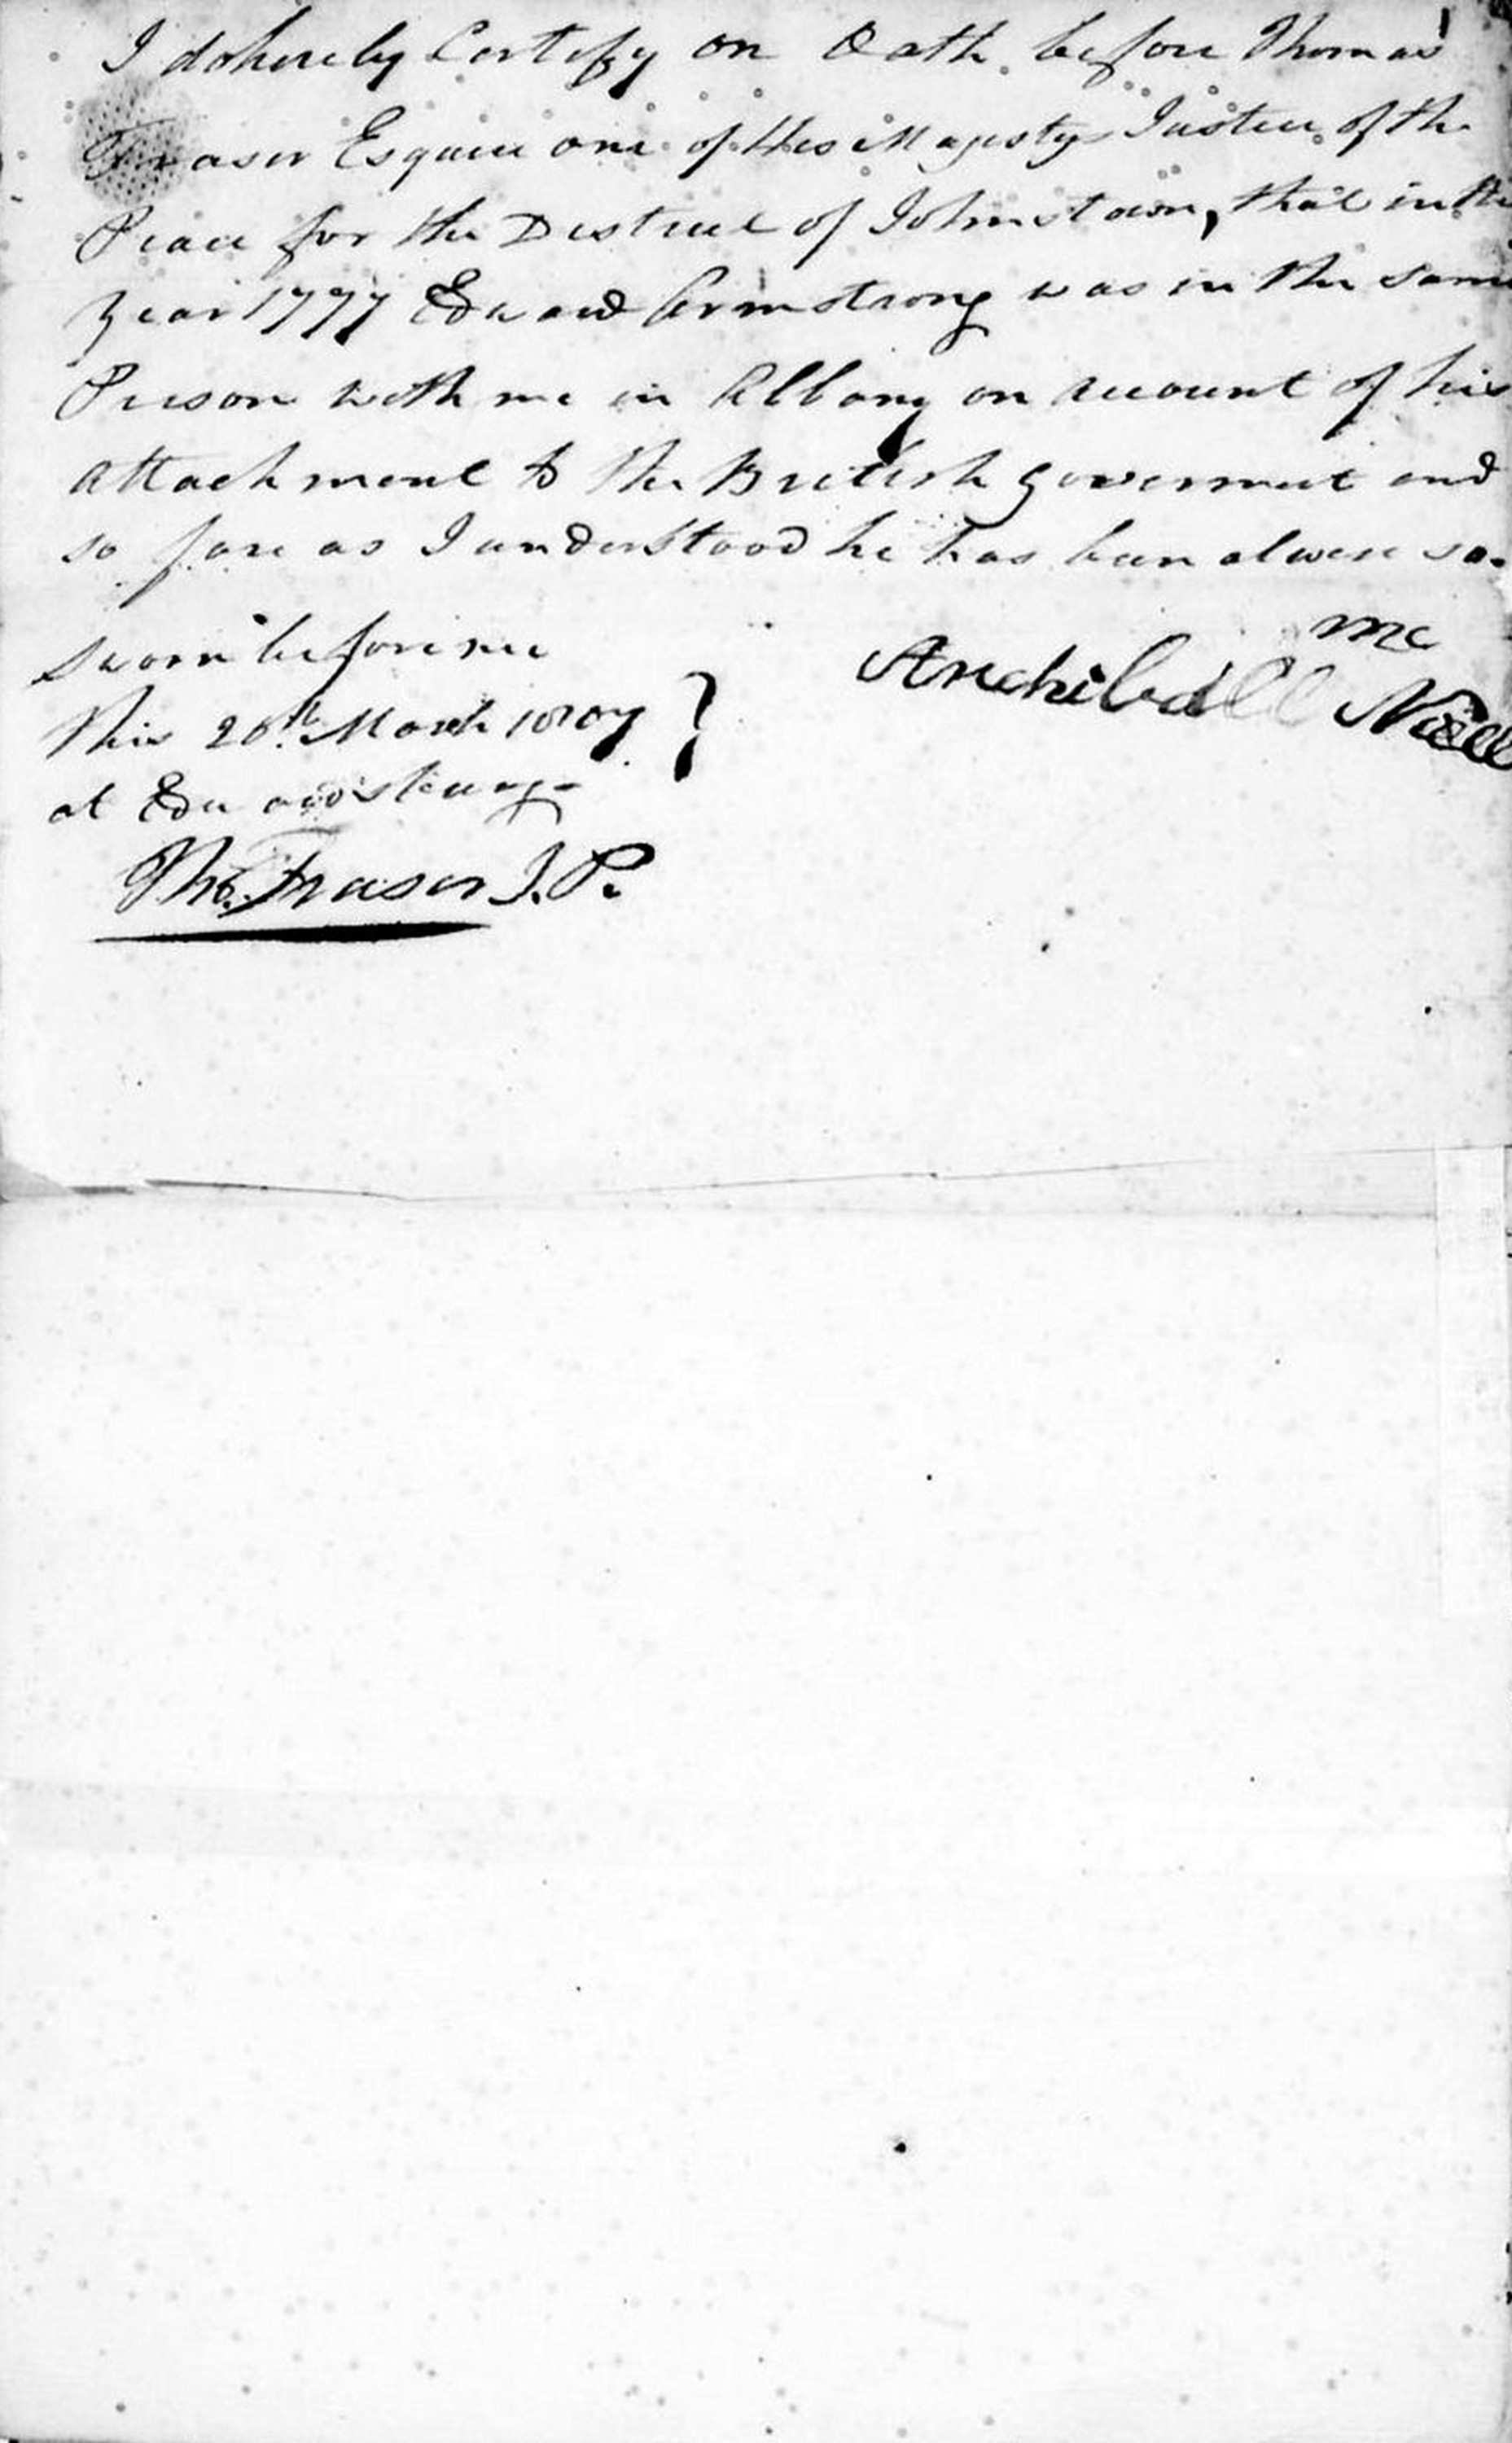 I do hereby Certify on Oath before Thomas
Fraser Esquire one of His Majestys Justice of the
Peace for the District of Johnstown, that in the
year 1777 Edward Armstrong was in the same
Prison with me in Albany on account of his
attachment to the British goverment and
so fare as I understood he has been alwese so.
Sworn before me
this 20th March 1807
at Edwardsburg
Archibald Mc Niell
Tho. Fraser J. P.